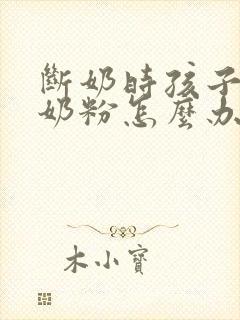 斷奶時孩子
奶粉怎麼办
木小寶